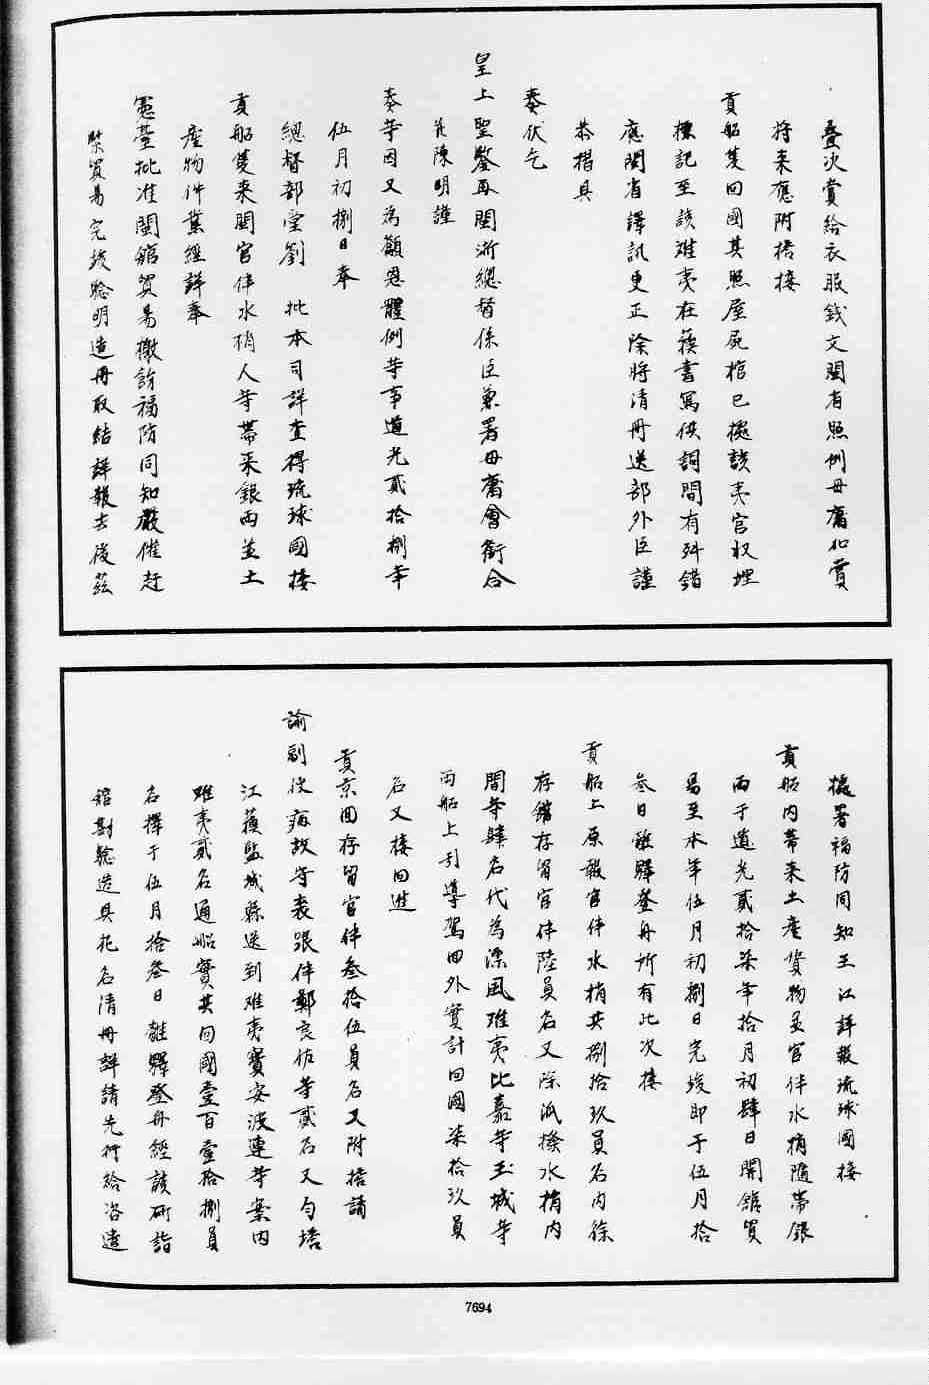 疊次賞給衣服錢文閩省照例毋庸加賞
將來應附搭接
貢船隻回國其照屋屍棺已擬該夷官收埋
標記至該難夷在蘇書寫供詞間有舛錯
應閩省譯訊更正除將清冊送部外臣謹
恭摺具
奏伏乞
皇上聖鑒再閩浙總督係臣兼署毋庸會銜合
併陳明謹
奏等因又為籲恩體例等事道光貳拾捌年
伍月初捌日奉
總督部堂劉 批本司詳查得琉球國接
貢船隻來閩官伴水梢人等帶來銀兩並土
產物件業經詳奉
憲臺批准開館貿易檄飭福防同知嚴催赶
緊貿易完竣驗明造冊取結詳報去後茲
據署福防同知王江詳報琉球國接
貢船內帶來土產貨物及官伴水梢隨帶銀
兩于道光貳拾柒年拾月初肆日開館貿
易至本年伍月初捌日完竣即于伍月拾
叁日離驛登舟所有此次接
貢船上原報官伴水梢共捌拾玖員名內除
存館存留官伴陸員名又除派撥水梢內
間等肆名代為漂風難夷比嘉等玉城等
兩船上引導駕回外實計回國柒拾玖員
名又接回進
貢京回存留官伴叁拾伍員名又附搭請
諭副使病故等表跟伴鄭良佐等貳名又勻搭
江蘇監城縣送到難夷寶安波連等案內
難夷貳名通船實共回國壹百壹拾捌員
名擇于伍月拾叁日離驛登舟經該研詣
館對驗造具花名清冊詳請先行給咨遣
7694